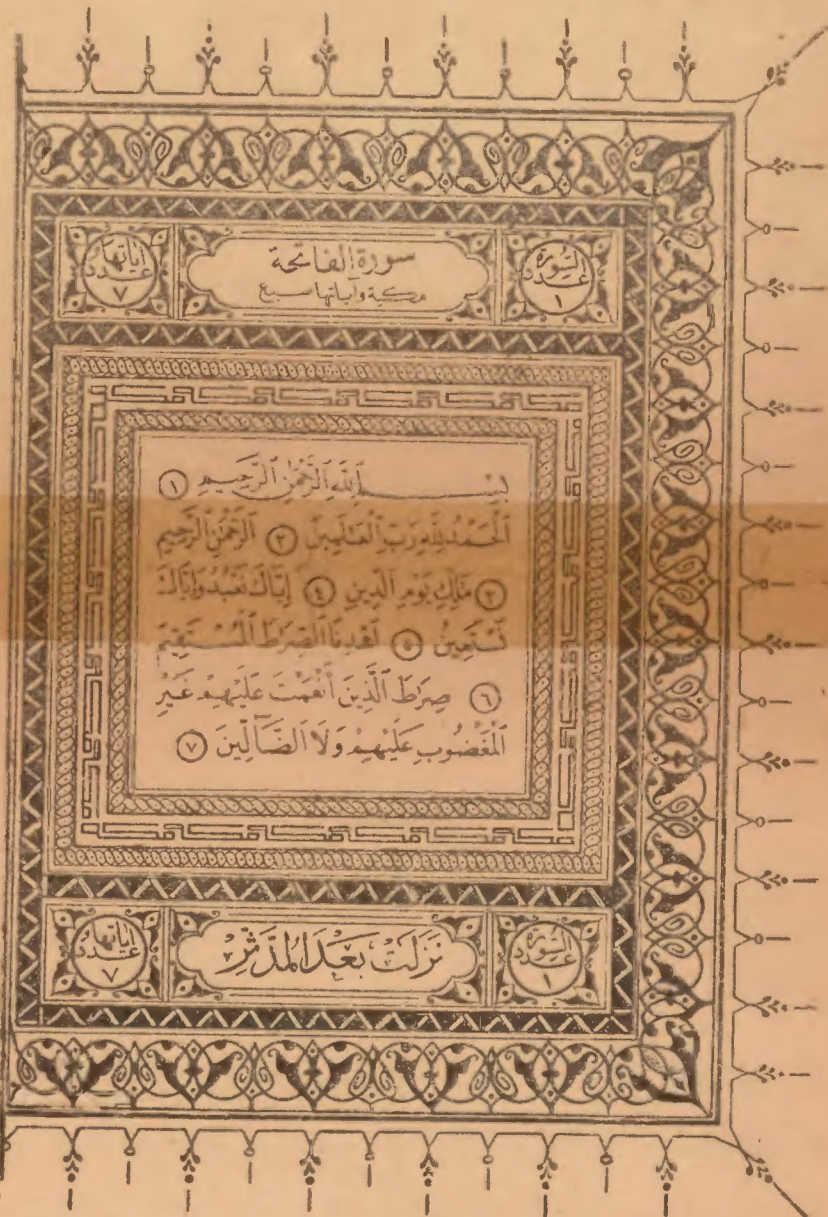 السورة عدد ١
سورة الفاتحة
مكية وآياتها سبع
آياتها عدد ٧
بِسْمِ ٱللَّهِ ٱلرَّحْمَٰنِ ٱلرَّحِيمِ ١
ٱلْحَمْدُ لِلَّهِ رَبِّ ٱلْعَٰلَمِينَ ٢ ٱلرَّحْمَٰنِ ٱلرَّحِيمِ
٣ مَٰلِكِ يَوْمِ ٱلدِّينِ ٤ إِيَّاكَ نَعْبُدُ وَإِيَّاكَ
نَسْتَعِينُ ٥ ٱهْدِنَا ٱلصِّرَٰطَ ٱلْمُسْتَقِيمَ
٦ صِرَٰطَ ٱلَّذِينَ أَنْعَمْتَ عَلَيْهِمْ غَيْرِ
ٱلْمَغْضُوبِ عَلَيْهِمْ وَلَا ٱلضَّآلِّينَ ٧
السورة عدد ١
نزلت بعد المدثر
آياتها عدد ٧